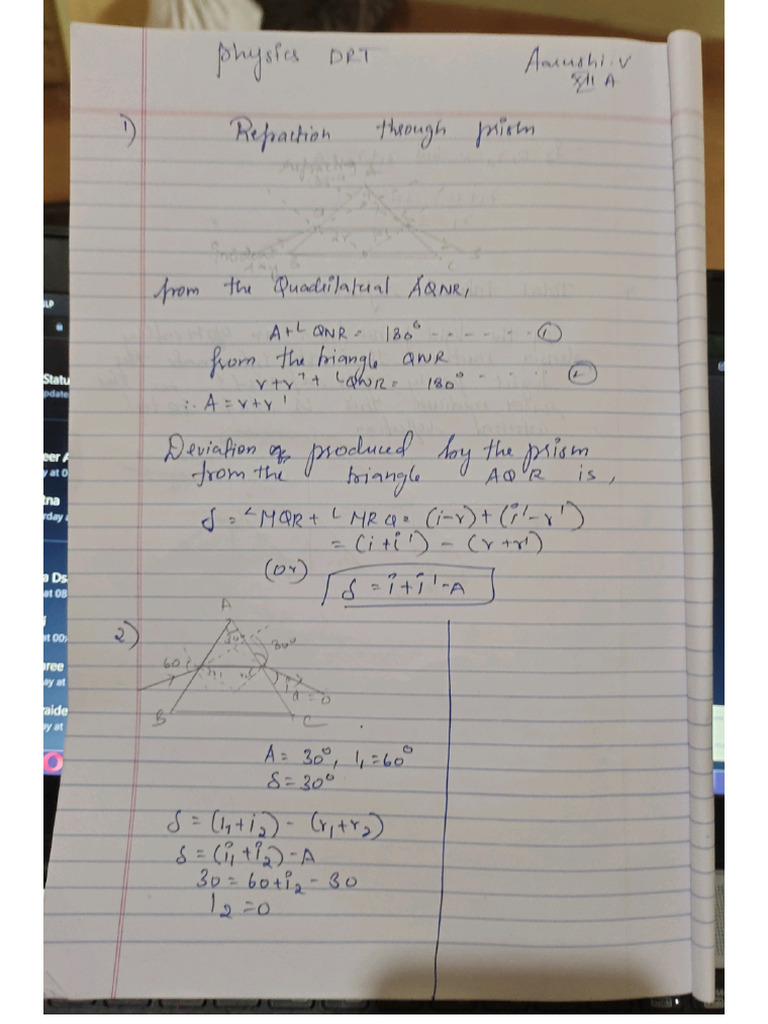 Physics DRT
Aarushi.V
XII A
1) Refraction through prism
from the Quadrilatual AQNR,
A+∠QNR = 180° - - - - - - ①
from the triangle QNR
r+r'+∠QNR = 180° - - ②
∴ A = r+r'
Deviation produced by the prism
from the triangle AQR is,
δ = ∠MQR + ∠MRQ = (i-r)+(i'-r')
= (i+i') - (r+r')
(or)
δ = i+i'-A
2)
A
30°
60
B
C
A = 30°, i₁=60°
δ=30°
δ = (i₁+i₂) - (r₁+r₂)
δ = (i₁+i₂)-A
30 = 60+i₂ - 30
i₂ = 0